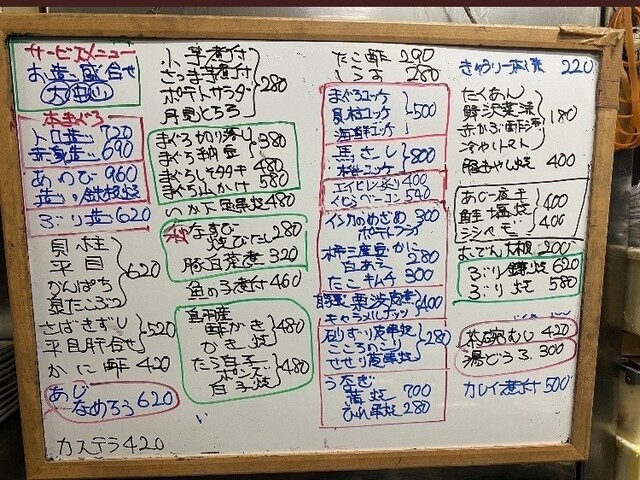 サービスメニュー
お造り盛合せ
大 中 小
本まぐろ
トロ造り 720
赤身造り 690
あわび 960
造り 鉄板焼
ぶり造り 620
貝柱
平目
かんぱち 620
泉だこぶつ
さばきずし
平目肝合せ 520
かに酢 420
あじ
なめろう 620
カステラ 420
小芋煮付
さつま芋煮付
ポテトサラダ 280
月見とろろ
まぐろ切り落し 380
まぐろ納豆
まぐろしそタタキ 480
まぐろ山かけ 580
いか 480
なすび
焼びたし 280
豚白菜煮 320
魚の子煮付 460
酢がき 480
かき焼
たら白子
ポンズ 480
白子焼
たこ酢 290
しらす 280
まぐろユッケ
貝柱ユッケ 500
海鮮ユッケ
馬さし 800
桜ユッケ
エイヒレ炙り 400
くじらベーコン 540
インカのめざめ 300
ポテトフライ
かに
白あえ 280
たこキムチ 300
400
キャラメルナッツ
砂ずり塩串焼
こころのこり 280
せせり塩串焼
うなぎ
蒲焼 700
ひれ串焼 280
きゅうり一本漬 220
たくあん
野沢菜漬 180
赤かぶ酢漬
冷やしトマト
豚もやし焼 400
あじ一夜干 400
鮭塩焼
シシャモ 400
おでん大根 200
ぶり鎌焼 620
ぶり焼 580
茶碗むし 420
湯どうふ 300
カレイ煮付 500